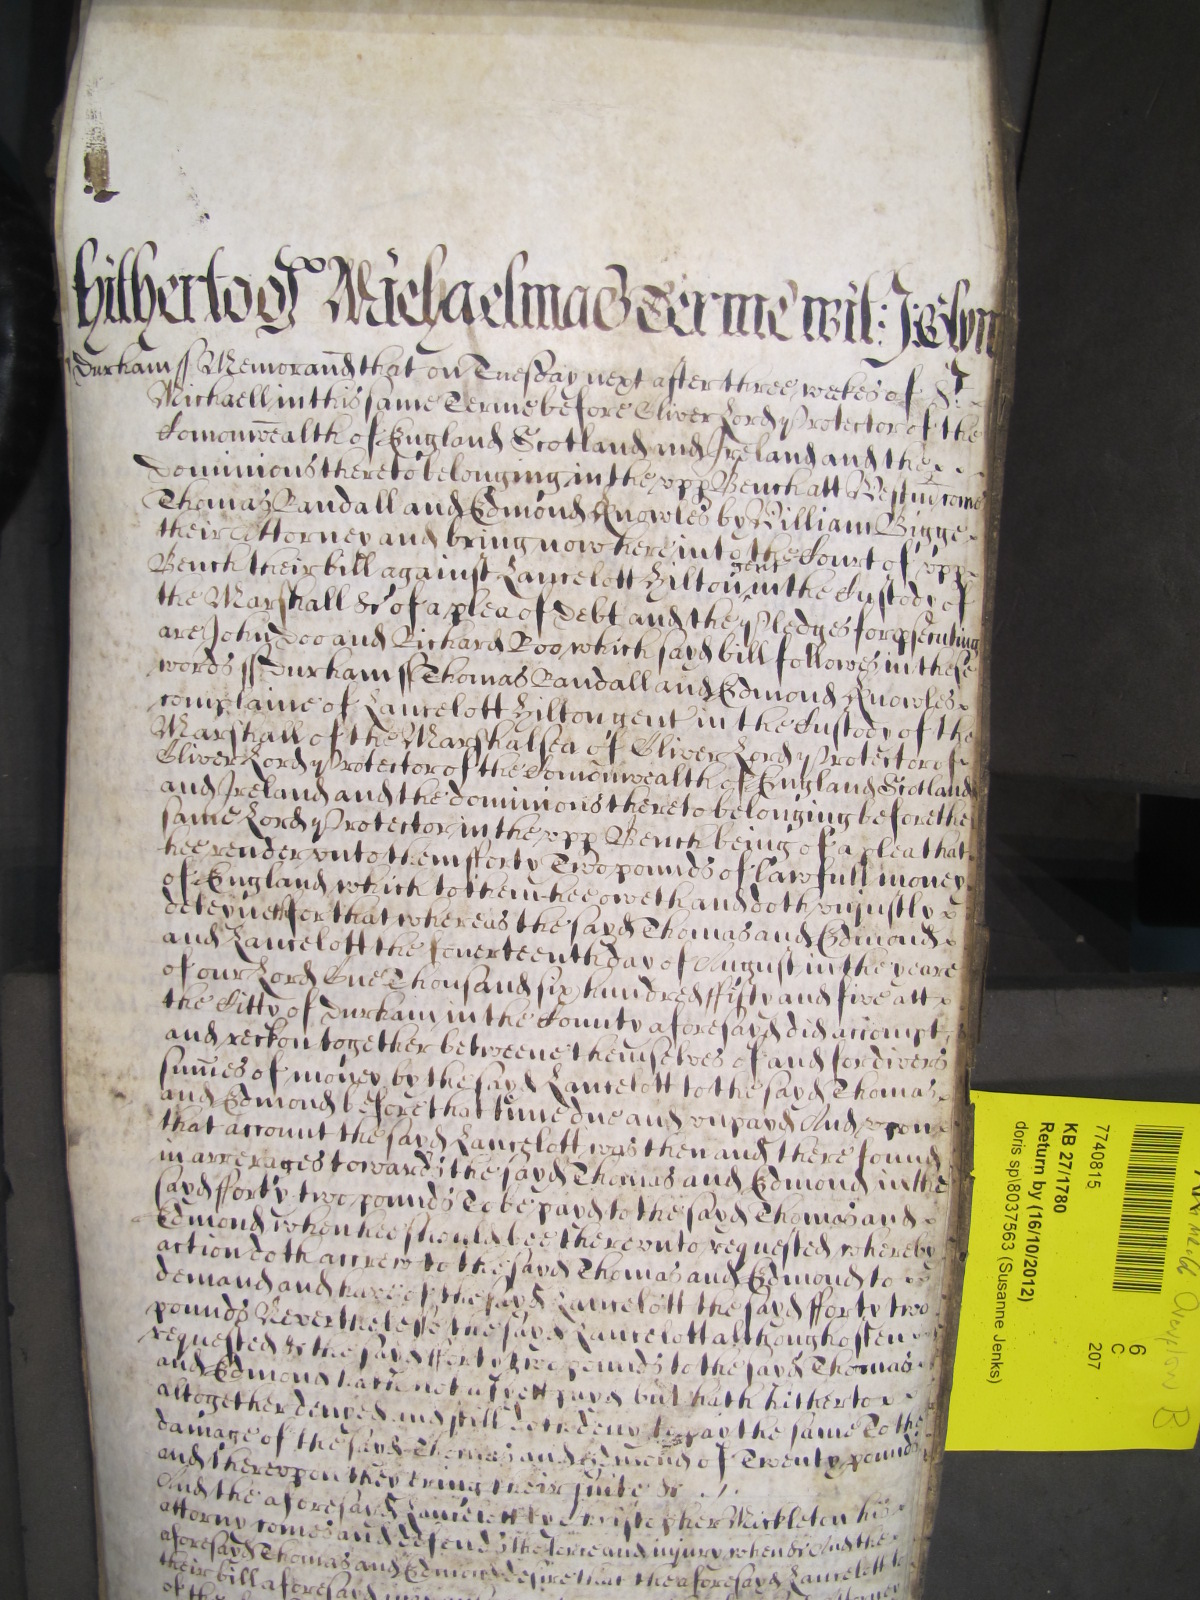 hitherto of Michaelmas Terme wit: Joslyn
Durham ss Memorand that on Tuesday next after three weekes of St.
Michaell in this same Terme before Oliver Lord Protector of the
Comonwealth of England Scotland and Ireland and the
Dominions thereto belonging in the upp Bench att Westm come
Thomas Randall and Edmond Knowles by William Bigge
their Attorney and bring now here into the Court of upp
Bench their bill against Lancelott Hilton gent in the Custody of
the Marshall &c of a plea of Debt and the Pledges for psecuting
are John Doo and Richard Roo which sayd bill followes in these
words ss Durham ss Thomas Randall and Edmond Knowles
complaine of Lancelott Hilton gent in the Custody of the
Marshall of the Marshalsea of Oliver Lord Protector of
Oliver Lord Protector of the Comonwealth of England Scotland
and Ireland and the dominions thereto belonging before the
same Lord Protector in the upp Bench being of a plea that
hee render unto them fforty Two pounds of lawfull money
of England which to them hee oweth and doth unjustly
deteyne ffor that whereas the sayd Thomas and Edmond
and Lancelott the fourteenth day of August in the yeare
of our Lord One Thousand six hundred ffifty and five att
the Citty of Durham in the County aforesayd did accompt
and reckon together betweene themselves of and for divers
sumes of money by the sayd Lancelott to the sayd Thomas
and Edmond before that time due and unpayd And upon
that account the sayd Lancelott was then and there found
in arrerages towards the sayd Thomas and Edmond in the
sayd fforty two pounds To be payd to the sayd Thomas and
Edmond when hee should bee thereunto requested whereby
action doth accrew to the sayd Thomas and Edmond to
demand and have of the sayd Lancelott the sayd fforty two
pounds Neverthelesse the sayd Lancelott although often
requested &c the sayd fforty two pounds to the sayd Thomas
and Edmond hath not as yett payd but hath hitherto
altogether denyed and still doth deny to pay the same To the
damage of the sayd Thomas and Edmond of Twenty pounds
and thereupon they bring their suite &c
And the aforesayd Lancelott by Cristopher Mickleton his
attorny comes and defends the force and injury when &c And the
aforesayd Thomas and Edmond desire that the aforesayd Lancelott to
their bill aforesayd may
7740815
KB 27/1780
Return by (16/10/2012)
doris sp\8037563 (Susanne Jenks)
6
C
207